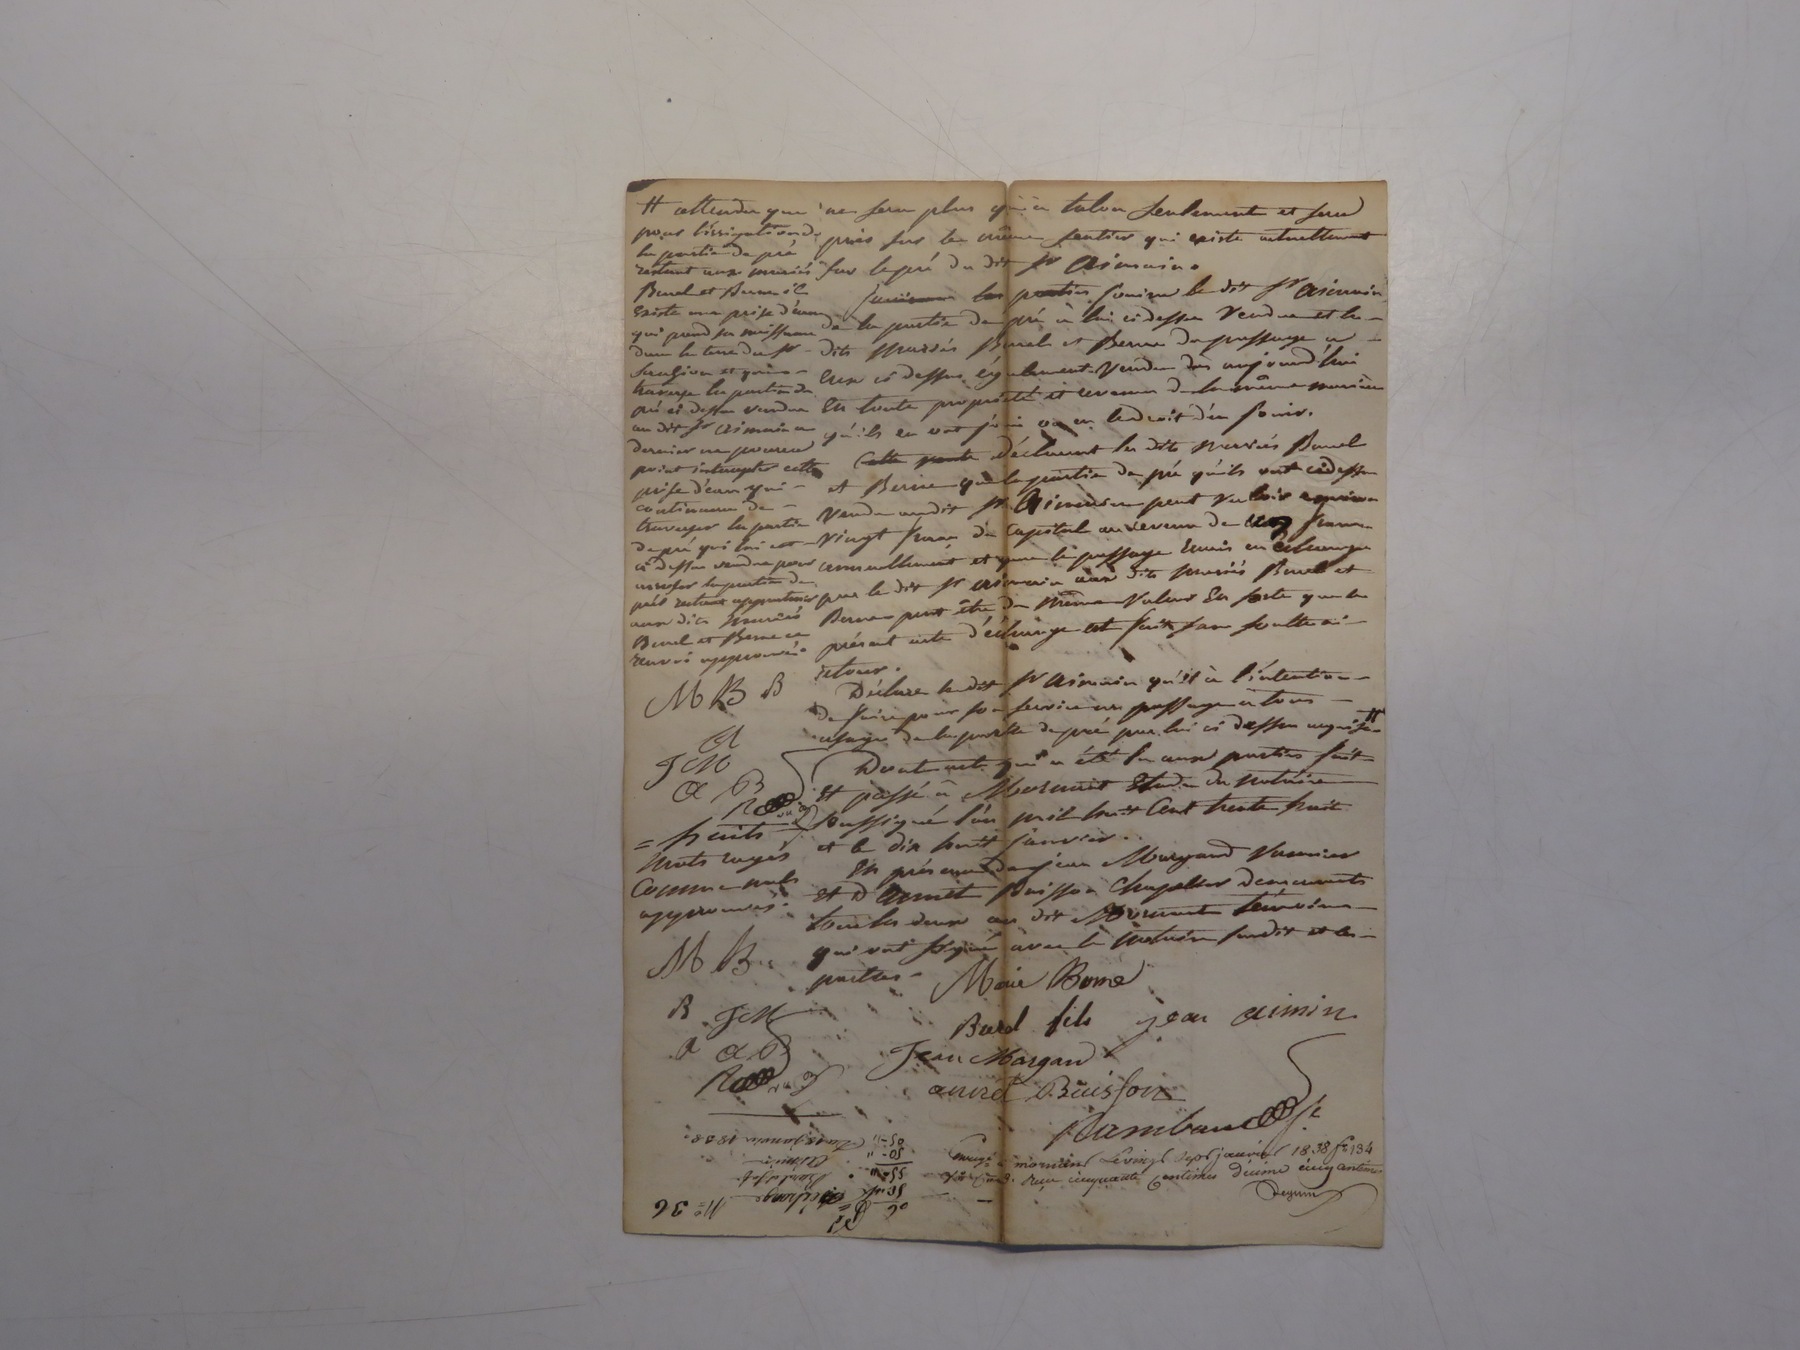 ne sera plus qu'à talon seulement et sera
pris sur le même sentier qui existe actuellement
sur le pré du dit Sr Aimain.
jouira le dit Sr Aimain
de la partie de pré à lui ci dessus vendue et les
dits mariés Burel et Berne du passage a
Eux ci dessus également vendu dès aujourd'hui
En toute propriété et revenu de la même manière
qu'ils en ont joui ou eu le droit d'en jouir.
Cette vente Déclarent les dits mariés Burel
et Berne que la partie de pré qu'ils ont ci dessus
vendu audit Sr Aimain peut valoir environ
vingt francs de Capital au revenu de francs
annuellement et que le passage Remis en échange
par le dit Sr Aimain aux dits mariés Burel et
Berne peut être de même valeur En sorte que le
présent acte d'échange est fait sans soulte ni
retour.
Déclare le dit Sr Aimain qu'il à l'intention
de faire pour son service un passage à tous
usages de la partie de pré par lui ci dessus acquise #
Dont acte qui a été lu aux parties fait
Et passé à Mornant Etude du notaire
soussigné l'an mil huit Cent trente huit
et le dix huit janvier.
En présence de jean Margand
Et D Annet Buisson Chapelier demeurants
tous les deux au dit Mornant témoins
qui ont signé avec le notaire susdit et les
parties.
# attendu que
pour l'irrigation de
la partie de pré
restant aux mariés
Burel et Berne il
Existe une prise d'eau
qui prend sa naissance
dans la terre du Sr
et qui
traverse la partie de
pré ci dessus vendue
au dit Sr Aimain ce
dernier ne pourra
point intercepter cette
prise d'eau qui
continuera de
traverser la partie
de pré qui lui est
ci dessus vendue pour
arroser la partie de
pré restant appartenir
aux dits mariés
Burel et Berne ce
renvoi approuvé.
M B B
A
J M
A B
= huit
mots rayés
Comme nuls
approuvés.
M B
B J M
A A B
Marie Berne
Burel fils jean aimin
Jean Margand
annet Buisson
Rambaud
Enreg. à mornant le vingt sept janvier 1838 fo 134
reçu cinquante Centimes décime cinq centimes
No 36
Echange
Aimain
Du 18 janvier 1838.